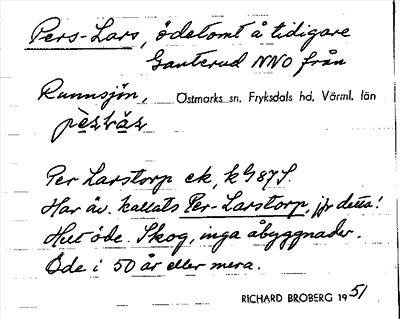 Pers-Lars, ödetomt å tidigare
Ganterud NNO från
Runnsjön, Östmarks sn, Fryksdals hd, Värml. län
pès̱ḻàs̱
Per Larstorp ek, k 9 87 S.
Har äv. kallats Per-Larstorp, jfr detta!
Helt öde. Skog, inga åbyggnader.
Öde i 50 år eller mera.
RICHARD BROBERG 1951